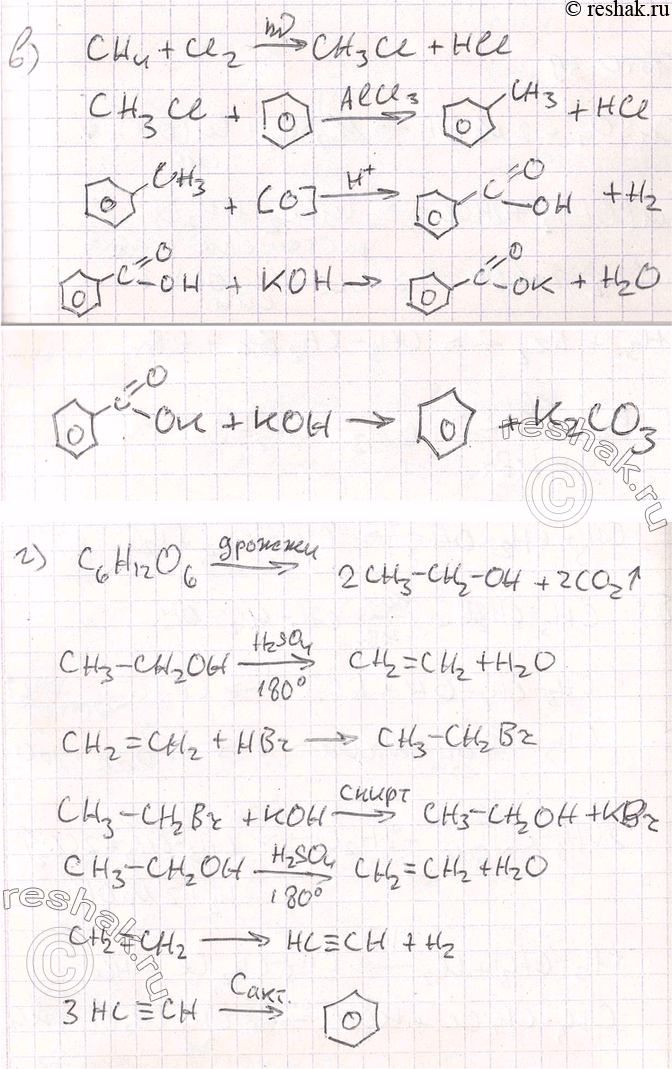 © reshak.ru
в) CH₄ + Cl₂ —hν→ CH₃Cl + HCl
CH₃Cl + ⌬ —AlCl₃→ ⌬–CH₃ + HCl
⌬–CH₃ + [O] —H⁺→ ⌬–C(=O)–OH + H₂
⌬–C(=O)–OH + KOH → ⌬–C(=O)–OK + H₂O
⌬–C(=O)–OK + KOH → ⌬ + K₂CO₃
reshak.ru
©
г) C₆H₁₂O₆ —дрожжи→ 2CH₃–CH₂–OH + 2CO₂↑
CH₃–CH₂OH —H₂SO₄ 180°→ CH₂=CH₂ + H₂O
CH₂=CH₂ + HBr → CH₃–CH₂Br
CH₃–CH₂Br + KOH —спирт→ CH₃–CH₂OH + KBr
CH₃–CH₂OH —H₂SO₄ 180°→ CH₂=CH₂ + H₂O
CH₂=CH₂ → HC≡CH + H₂
3HC≡CH —Cакт.→ ⌬
reshak.ru
©